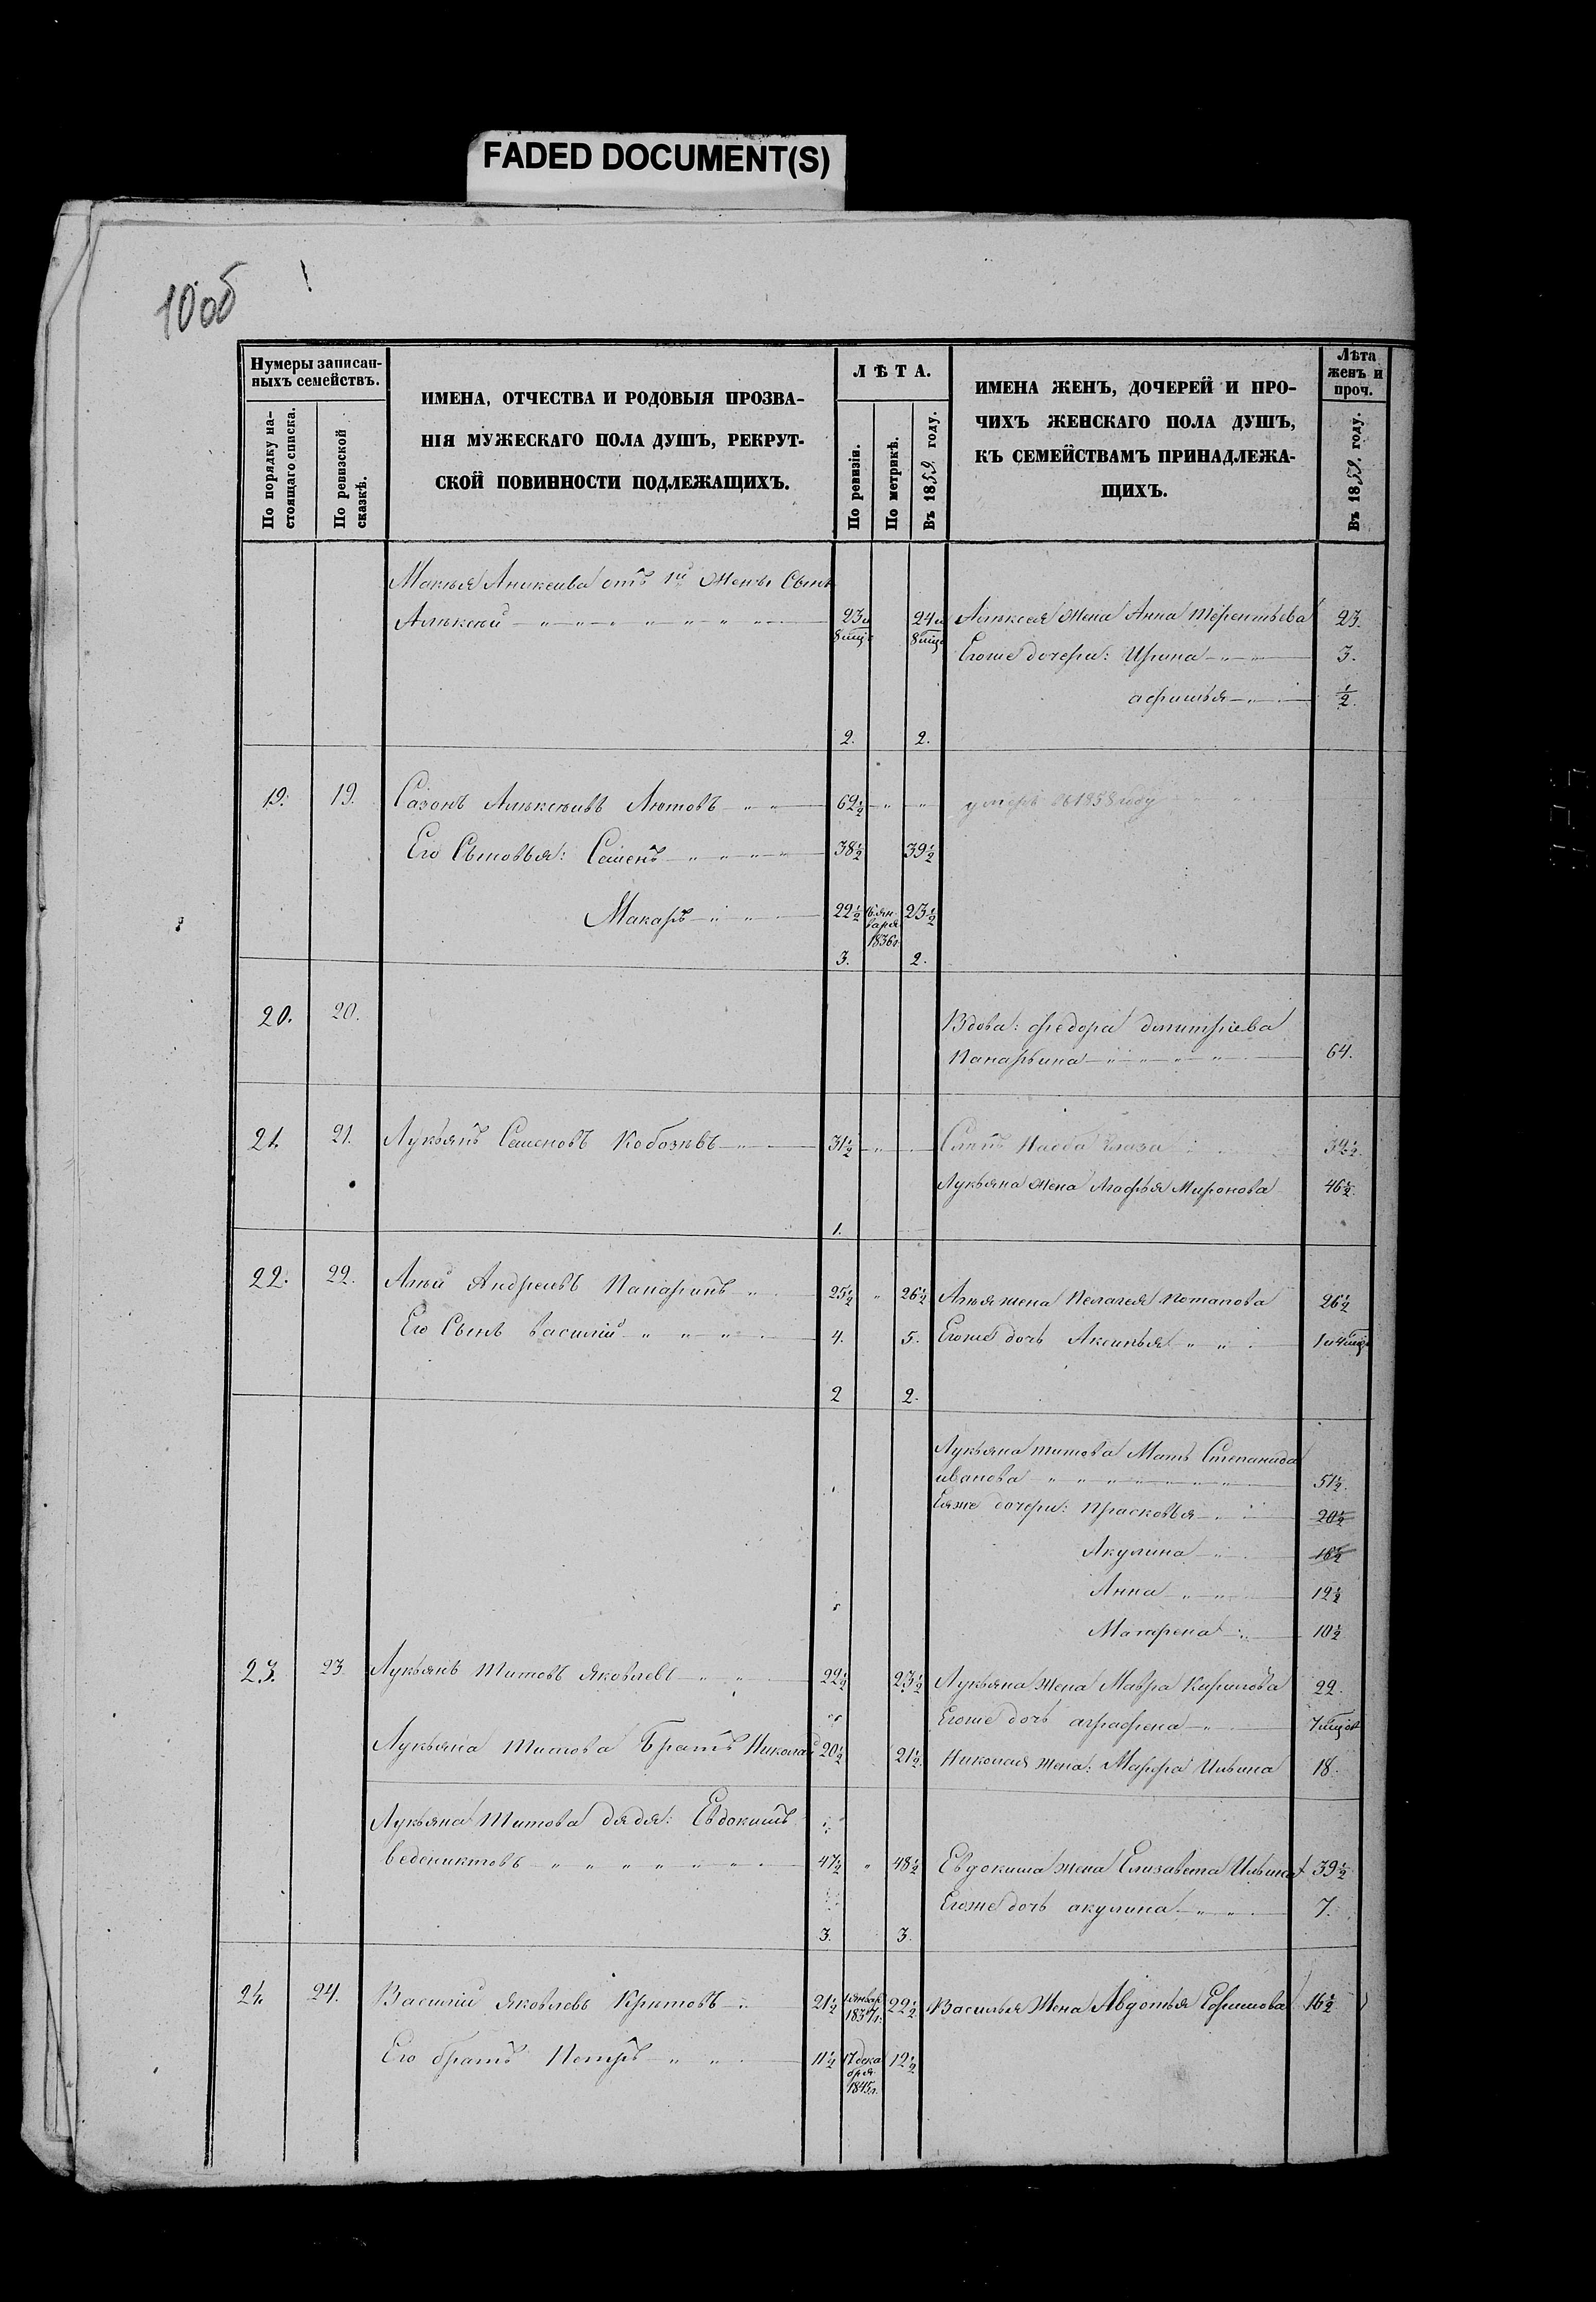 FADED DOCUMENT(S)
10 об
Нумеры записан-
ныхъ семействъ.
По порядку на-
стоящаго списка.
По ревизской
сказкѣ.
ИМЕНА, ОТЧЕСТВА И РОДОВЫЯ ПРОЗВА-
НІЯ МУЖЕСКАГО ПОЛА ДУШЪ, РЕКРУТ-
СКОЙ ПОВИННОСТИ ПОДЛЕЖАЩИХЪ.
ЛѢТА.
По ревизіи.
По метрикѣ.
Въ 1859. году.
ИМЕНА ЖЕНЪ, ДОЧЕРЕЙ И ПРО-
ЧИХЪ ЖЕНСКАГО ПОЛА ДУШЪ,
КЪ СЕМЕЙСТВАМЪ ПРИНАДЛЕЖА-
ЩИХЪ.
Лѣта
женъ и
проч.
Въ 1859. году.
отъ 1й Жены Сынъ
Алѣксѣй 23 и 8 мцъ 24 и 8 мцъ Алѣксея Жена Анна Терентьева 23.
Егоже дочери: Ирина 3.
½.
2. 2.
19. 19. Сазонъ Алѣксѣивъ Лютовъ 62½ умеръ въ 1858 году
Его Сыновья: Семенъ 38½ 39½
Макаръ 22½ января 1836 г. 23½
3. 2.
20. 20. Вдова: Федора Дмитриева
Панарьина 64.
21. 21. Лукьянъ Семеновъ Кобозѣвъ 31½
Лукьяна Жена Агафья Миронова 46½.
1.
22. 22. Андреевъ Панаринъ 25½ 26½ жена Пелагея Потапова 26½
Его Сынъ Василій 4. 5. Егоже дочь Аксинья 1 и 4 мцъ
2 2.
Лукьяна Титова Мать Степанида
иванова 51½.
Еяже дочери: Прасковья 20½
Акулина 18½
Анна 12½
10½
23. 23 Лукьянъ Титовъ Яковлевъ 22½ 23½ Лукьяна Жена Мавра Кирилова 22.
Егоже дочь аграфена
Лукьяна Титова Братъ Николай 20½ 21½ Николая Жена: Марфа Ильина 18.
Лукьяна Титова дядя: Евдокимъ
ведениктовъ 47½ 48½ Евдокима Жена Елизавета Ильина 39½
Егоже дочь акулина 7.
3. 3.
24. 24. Василій Яковлевъ Крютовъ 21½ 1 января 1837 г. 22½ Василья Жена Авдотья Ефимова 16½
Его братъ Петръ 11½ 17 декабря 1845 г. 12½